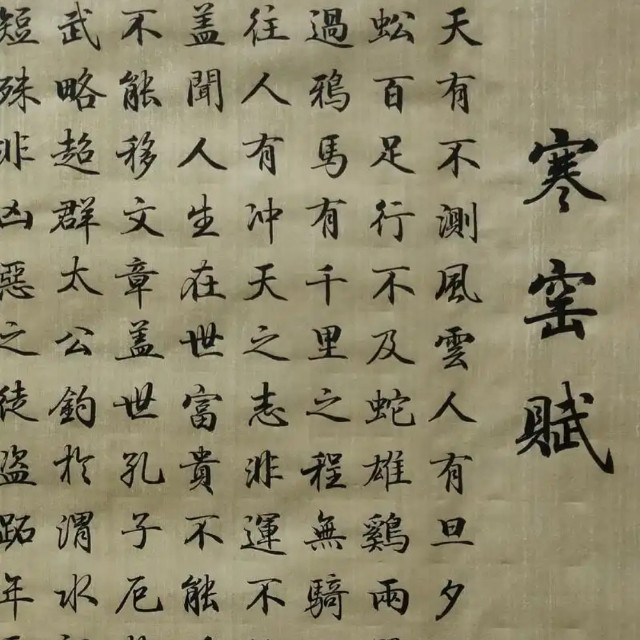 寒窑賦
天有不測風雲人有旦夕
蚣百足行不及蛇雄鷄兩
過鴉馬有千里之程無騎
往人有冲天之志非運不
盖聞人生在世富貴不能
不能移文章盖世孔子厄
武略超群太公釣於渭水
短殊非凶惡之徒盗跖年